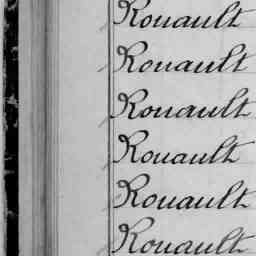 Rouault
Rouault
Rouault
Rouault
Rouault
Rouault